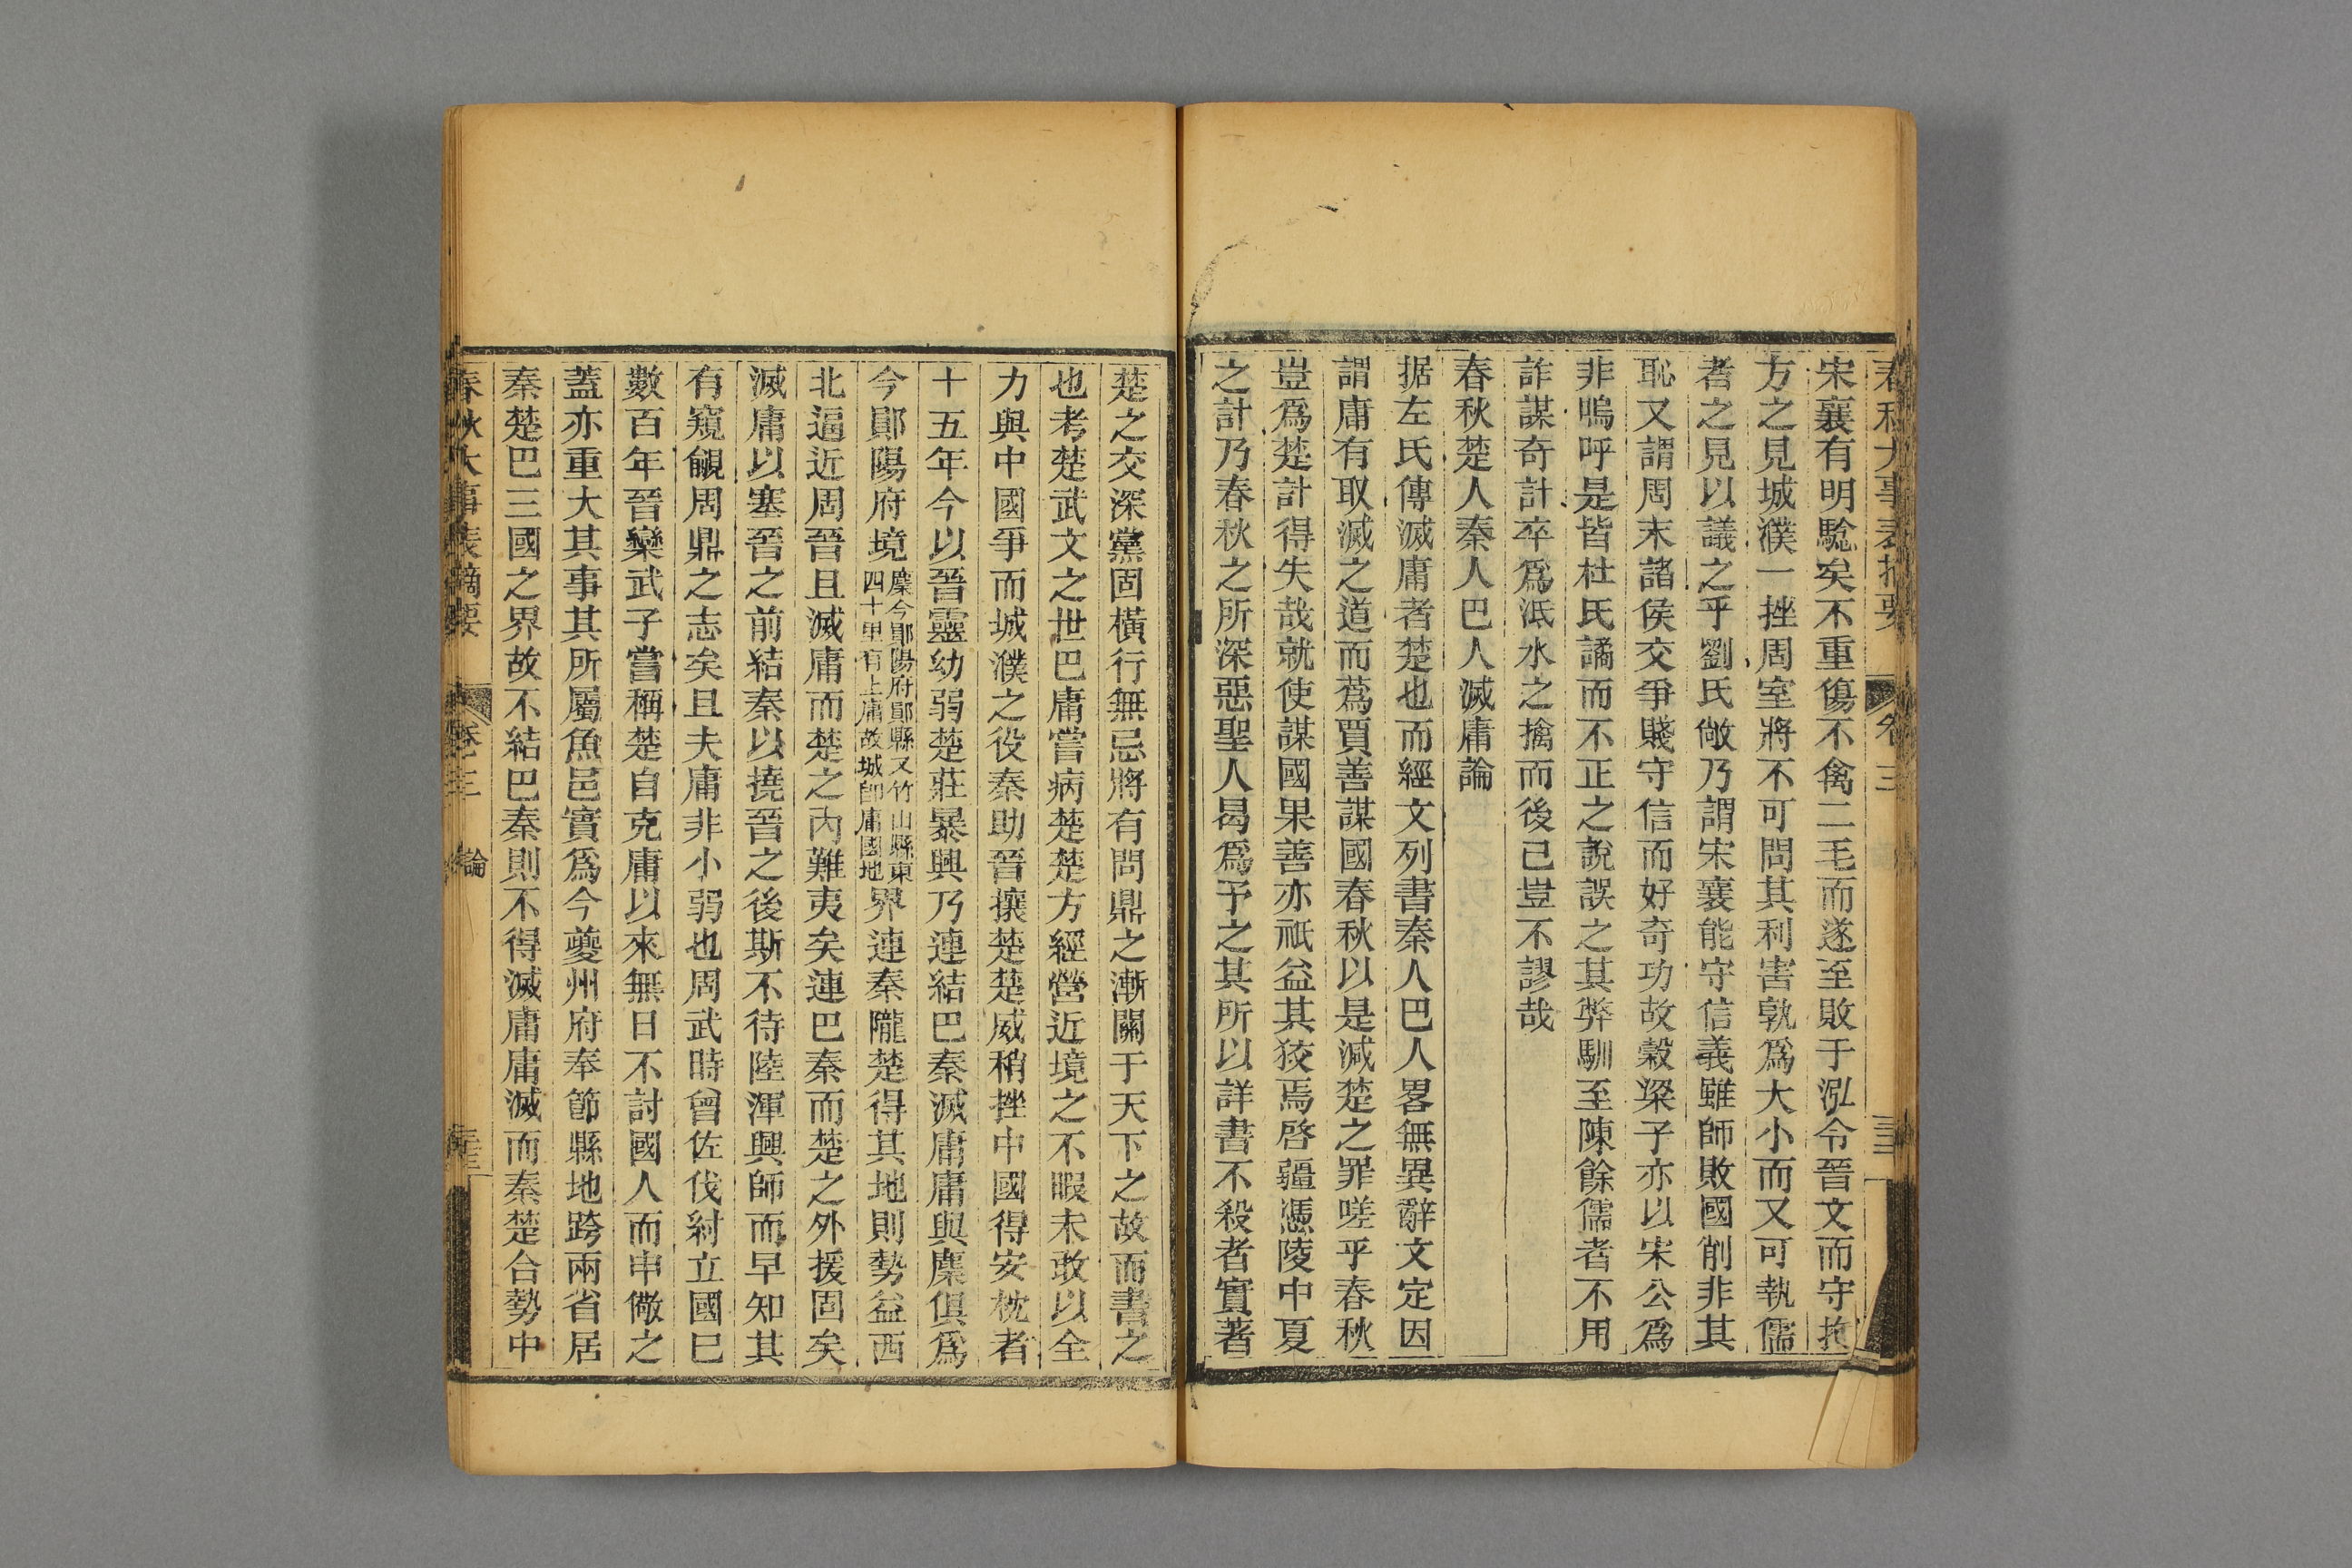 春秋大事表摘要 卷三
宋襄有明騐矣不重傷不禽二毛而遂至敗于泓令晉文而守拘
方之見城濮一挫周室將不可問其利害孰爲大小而又可執儒
者之見以議之乎劉氏敞乃謂宋襄能守信義雖師敗國削非其
恥又謂周末諸侯交爭賤守信而好奇功故穀梁子亦以宋公爲
非嗚呼是皆杜氏譎而不正之說誤之其弊馴至陳餘儒者不用
詐謀奇計卒爲泜水之擒而後已豈不謬哉
春秋楚人秦人巴人滅庸論
据左氏傳滅庸者楚也而經文列書秦人巴人畧無異辭文定因
謂庸有取滅之道而蔿賈善謀國春秋以是减楚之罪嗟乎春秋
豈爲楚計得失哉就使謀國果善亦祇益其狡焉啓疆憑陵中夏
之計乃春秋之所深惡聖人曷爲予之其所以詳書不殺者實著
楚之交深黨固橫行無忌將有問鼎之漸關于天下之故而書之
也考楚武文之世巴庸嘗病楚楚方經營近境之不暇未敢以全
力與中國爭而城濮之役秦助晉攘楚楚威稍挫中國得安枕者
十五年今以晉靈幼弱楚莊暴興乃連結巴秦滅庸庸與麇俱爲
今鄖陽府境麇今鄖陽府鄖縣又竹山縣東四十里有上庸故城卽庸國地界連秦隴楚得其地則勢益西
北逼近周晉且滅庸而楚之內難夷矣連巴秦而楚之外援固矣
滅庸以塞晉之前結秦以撓晉之後斯不待陸渾興師而早知其
有窺覦周鼎之志矣且夫庸非小弱也周武時曾佐伐紂立國已
數百年晉欒武子嘗稱楚自克庸以來無日不討國人而申儆之
蓋亦重大其事其所屬魚邑實爲今夔州府奉節縣地跨兩省居
秦楚巴三國之界故不結巴秦則不得滅庸庸滅而秦楚合勢中
春秋大事表摘要 卷三 論